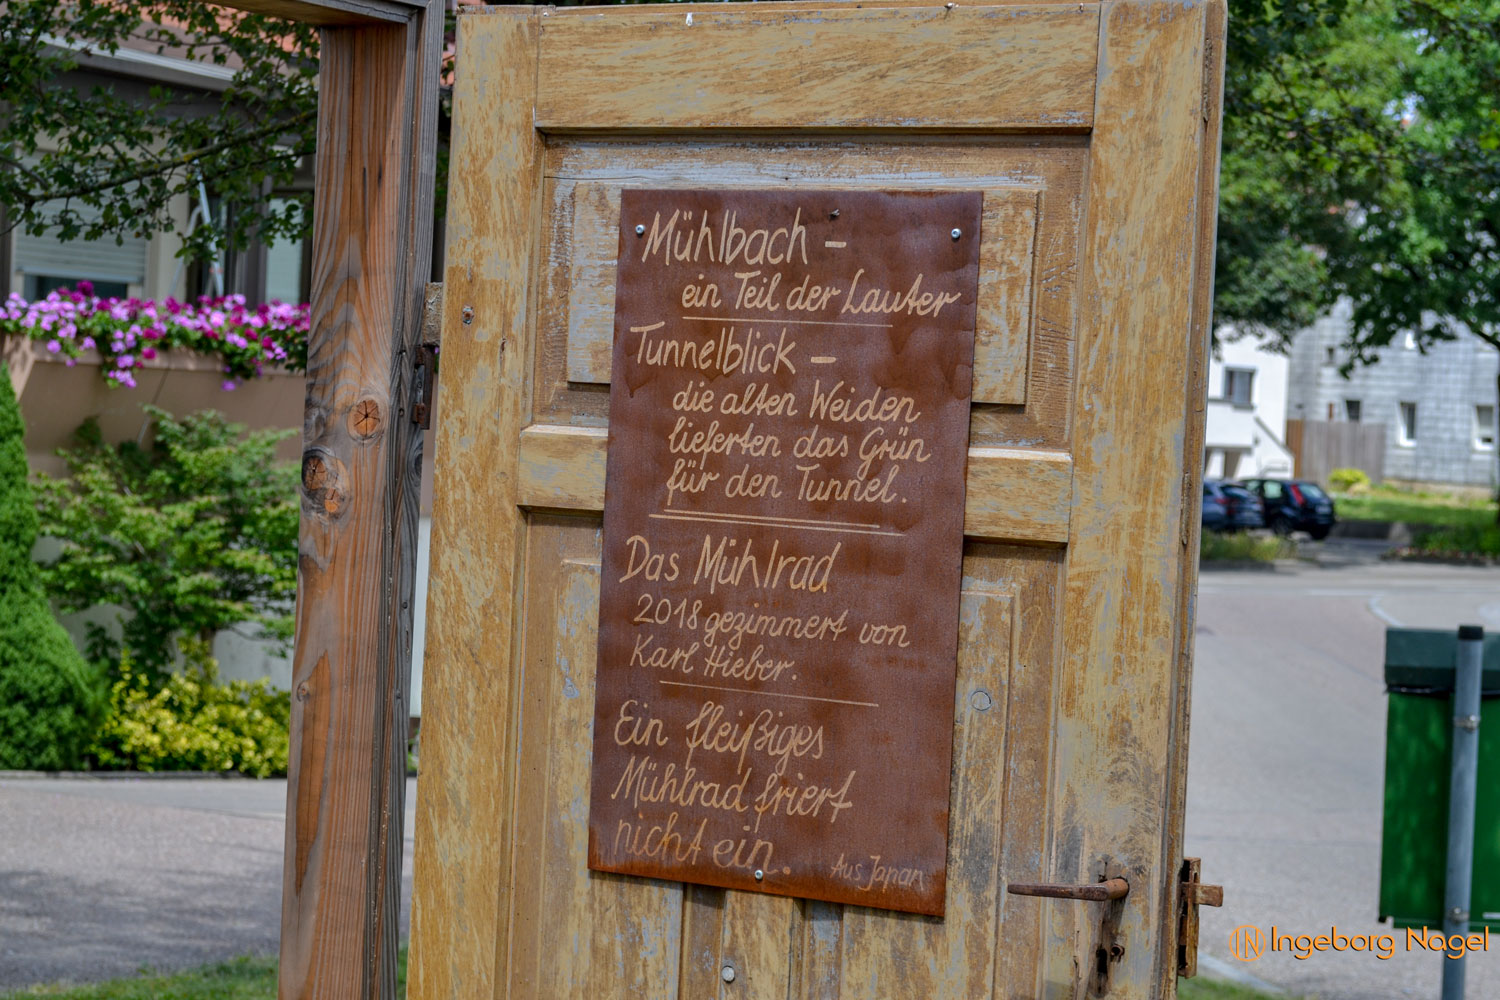 Mühlbach –
ein Teil der Lauter
Tunnelblick –
die alten Weiden
lieferten das Grün
für den Tunnel.
Das Mühlrad
2018 gezimmert von
Karl Hieber.
Ein fleißiges
Mühlrad friert
nicht ein.
Aus Japan
IN Ingeborg Nagel